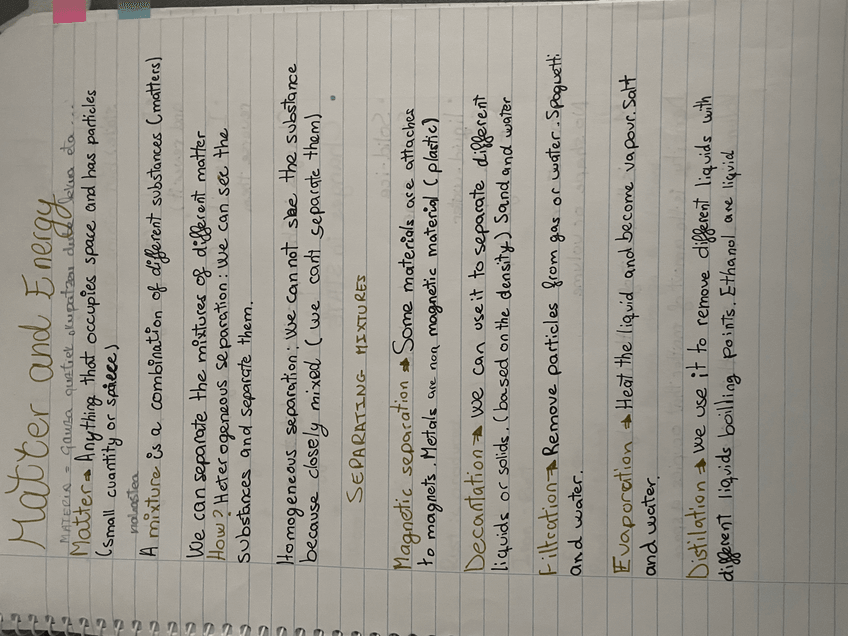 Matter and Energy
MATERIA = Gauza guztiek okupatzen dute lekua eta ...
Matter → Anything that occupies space and has particles
(small cuantity or spiece)
nahastea
A mixture is a combination of different substances (matters)
We can separate the mixtures of different matter
How? Heterogeneous separation: We can see the
substances and separate them.
Homogeneous separation: We can not see the substance
because closely mixed (we can't separate them)
SEPARATING MIXTURES
Magnetic separation → Some materials are attaches
to magnets. Metals are non magnetic material (plastic)
Decantation → We can use it to separate different
liquids or solids. (based on the density) Sand and water
Filtration → Remove particles from gas or water. Spaguetti
and water.
Evaporation → Heat the liquid and become vapour. Salt
and water.
Distilation → We use it to remove different liquids with
different liquids boilling points. Ethanol are liquid